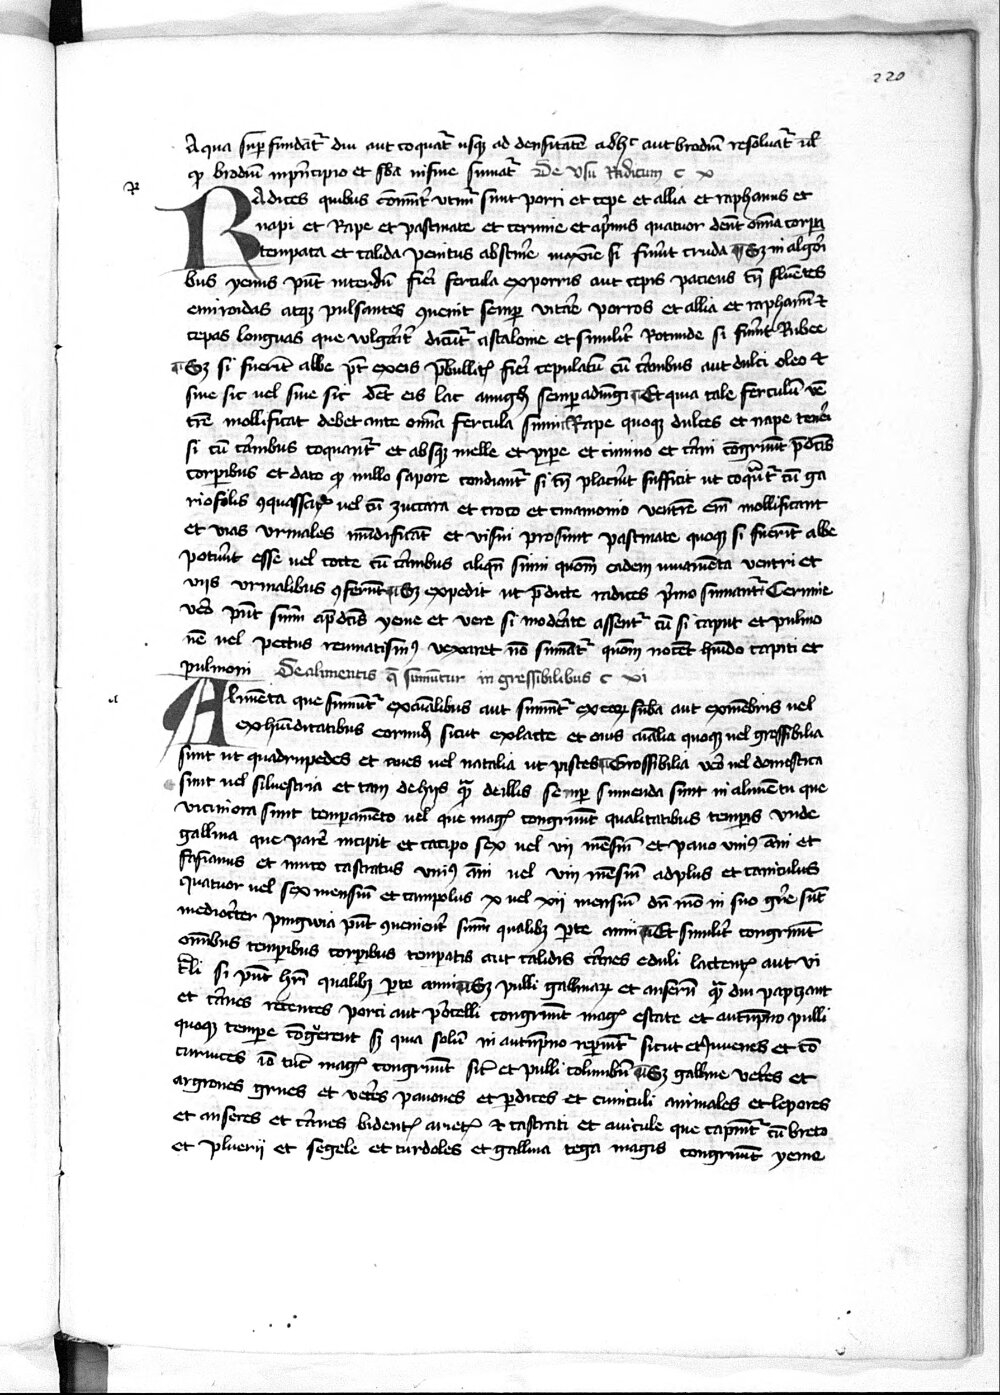 220
Aqua sup fundāt᷑ diu aut coquat᷑ usq ad densitatē adhc aut brodiū resoluat᷑ ul
q brodiū in pͥncipio et sba in fine sumat᷑ De usu Radicum c x
RAdices quibus comit᷑ utim᷑ sunt porri et cepe et allia et raphanus et
napi et Rape et pastinate et cerinie et apͥmis quatuor dent omia corpa
tempata et calida penitus abstinē maxie si fuerīt cruda Sz in algori
bus yemis pn̄t interdū fieri fercula ex porris aut cepis paciens tn̄ fluentes
emiroidas atqz pulsantes quenit semp vitare porros et allia et raphanū et
cepas longuas que vulgarit᷑ dicūt᷑ ascalonie et similit᷑ Rotunde si fuerīt Rubee
Sz si fuerīt albe pt ex eis pͥbullitis fieri cepulatū cū carnibus aut dulci oleo et
siue sic uel siue sic det eis lac amigd semp adiungi Et quia tale ferculū ve
tre mollificat debet ante omia fercula sumi Rape quoque dulces et nape teneri
si cū carnibus coquant᷑ et absqz melle et pipe et cimino et carui congruūt pdcis
corpibus et dato q nullo sapore condiant᷑ si tn̄ placuīt sufficit ut coquāt᷑ cū ga
riofilis uel cū zuccara et croco et cinamomo ventrē em̄ mollificant
et vias urinales mūdificāt et visui prosunt pastinate quoque si fuerīt albe
poterūt esse uel cocte cū carnibus aliqn̄ sumi quom̄ eadem iuuamēta ventri et
viis urinalibus 9ferūt Sz expedit ut pdicte radices pͥmo sumant᷑ Cerinie
vero pn̄t sumi a pdcis yeme et vere si moderate assent᷑ cū si caput et pulmo
nē uel pectus reumatism9 vexaret nō sumāt᷑ quom̄ nocēt humdo capiti et
pulmoni De alimentis q sumuntur in gressibilibus c xi
ALimēta que sumūt᷑ ex aīalibus aut sumūt᷑ ex eorum sba aut ex mēbris uel
ex humditatibus eorundē sicut ex lacte et ouis aīalia quoque uel gressibilia
sunt ut quadrupedes et aues uel natalia ut pisces Gressibilia vero uel domestica
sunt uel siluestria et tam de hiis qm̄ de illis semp sumenda sunt in alimētū que
viciniora sunt tempamēto uel que magis congruūt qualitatibus tempis unde
gallina que parē incipit et cacipo sex uel vii mēsiū et pauo uni9 ani et
fasianus et muto castratus uni9 ani uel viii mēsiū ad plus et caniculus
quatuor uel sex mensiū et campolus x uel xii mensiū dū mō in suo gnē sūt
mediocriter pingwia pn̄t quenient᷑ sumi qualibz pte anni Et similit᷑ congruūt
omibus tempibus corpibus tempatis aut calidis carnes eduli lactentis aut vi
tuli si pn̄t hri qualibz pte anni Sz pulli gallinarum et anserū qm̄ diu papizant
et carnes recentes porci aut porcelli congruūt magis estate et autūpno pulli
quoque tempe congruerent sz quia solū in autūpno repiūt᷑ sicut et Juuenes et co
turnices io tūc magis congruūt sil et pulli columbini Sz galline veteres et
argrones grues et veteres pauones et pdices et cuniculi animales et lepores
et anseres et carnes bidentis arietis et castrati et auicule que capiūt᷑ cū breto
et pluerii et segele et turdoles et gallina cega magis congruūt yeme